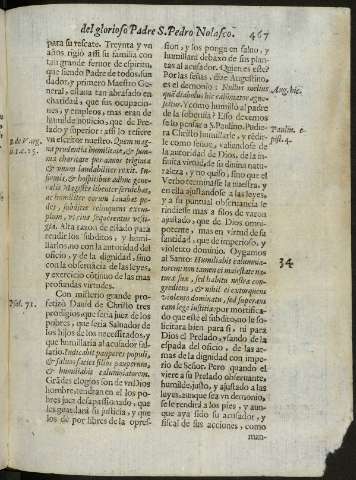 del glorioso Padre S. Pedro Nolasco. 467
para su rescate. Treynta y vn
años rigiò assi su familia con
tan grande feruor de espiritu,
que siendo Padre de todos, fun
dador, y primero Maestro Ge
neral, estaua tan abrasado en
charidad, que sus ocupacio-
nes, y empleos, mas eran de
humilde nouicio, que de Pre-
lado y superior: assi lo refiere
vn escritor nuestro. Quem mag-
na prudentia humilitate, & sum-
ma charitate per annos triginta
& vnum laudabiliter rexit. In-
firmis, & hospitibus adhuc gene-
ralis Magister libenter seruiebat,
ac humiliter eorum lauabat pe-
des, subditis relinquens exem-
plum, vt eius sequerentur vesti-
gia. Alta razon de estado para
rendir los subditos, y humi-
llarlos, no con la autoridad del
oficio, y de la dignidad, sino
con la obseruancia de las leyes,
y exercicio cõtinuo de las mas
profundas virtudes.
Con misterio grande pro-
fetizò Dauid de Christo tres
prodigios que seria juez de los
pobres, que seria Saluador de
los hijos de los necessitados, y
que humillaria al acusador fal-
sario. Iudicabit pauperes populi,
& saluos faciet filios pauperum,
& humiliabit calumniatorem.
Grãdes elogios son de vn Dios
hombre, tendran en el los po-
bres juez desapassionado, que
les guardarà su justicia, y que
los de por libres de la opres-
sion, y los ponga en saluo, y
humillarà debaxo de sus plan-
tas al acusador. Quien es este?
Por las señas, dize Augustino,
es el demonio: Nullus melius
quã diabolus hic calumniator agnos-
citur. Y como humillò al padre
de la soberuia? Esso deuemos
se lo pensar a S. Paulino. Pudie-
ra Christo humillarle, y rẽdir-
le como señor, valiendose de
la autoridad de Dios, de la in-
finita virtud, de su diuina natu-
raleza, y no quiso, sino que el
Verbo terminasse la nuestra, y
en ella ajustandose a las leyes,
y a su puntual obseruancia le
rindiesse mas a filos de varon
ajustado, que de Dios omni-
potente, mas en virtud de su
santidad, que de imperioso, y
violento dominio. Oygamos
al Santo: Humiliabit calumnia-
torem non tamen ei maiestate no-
mine suæ, sed habitu nostra con-
gredietur, & nihil ei extorquens
violento dominatu, sed superans
eam lege iustitiæ: por mortifica-
do que este el subdito, no le so-
licitara bien para si, ni para
Dios el Prelado, vsando de la
espada del oficio, de las ar-
mas de la dignidad con impe-
rio de Señor. Pero quando el
viere a su Prelado obseruante,
humilde, justo, y ajustado a las
leyes, aunque sea vn demonio,
se le rendirà a los pies, y aun-
que aya sido su acusador, y
fiscal de sus acciones, como
man-
Psal. 71.
Aug. hic.
Paulin. e-
pist. 4.
34